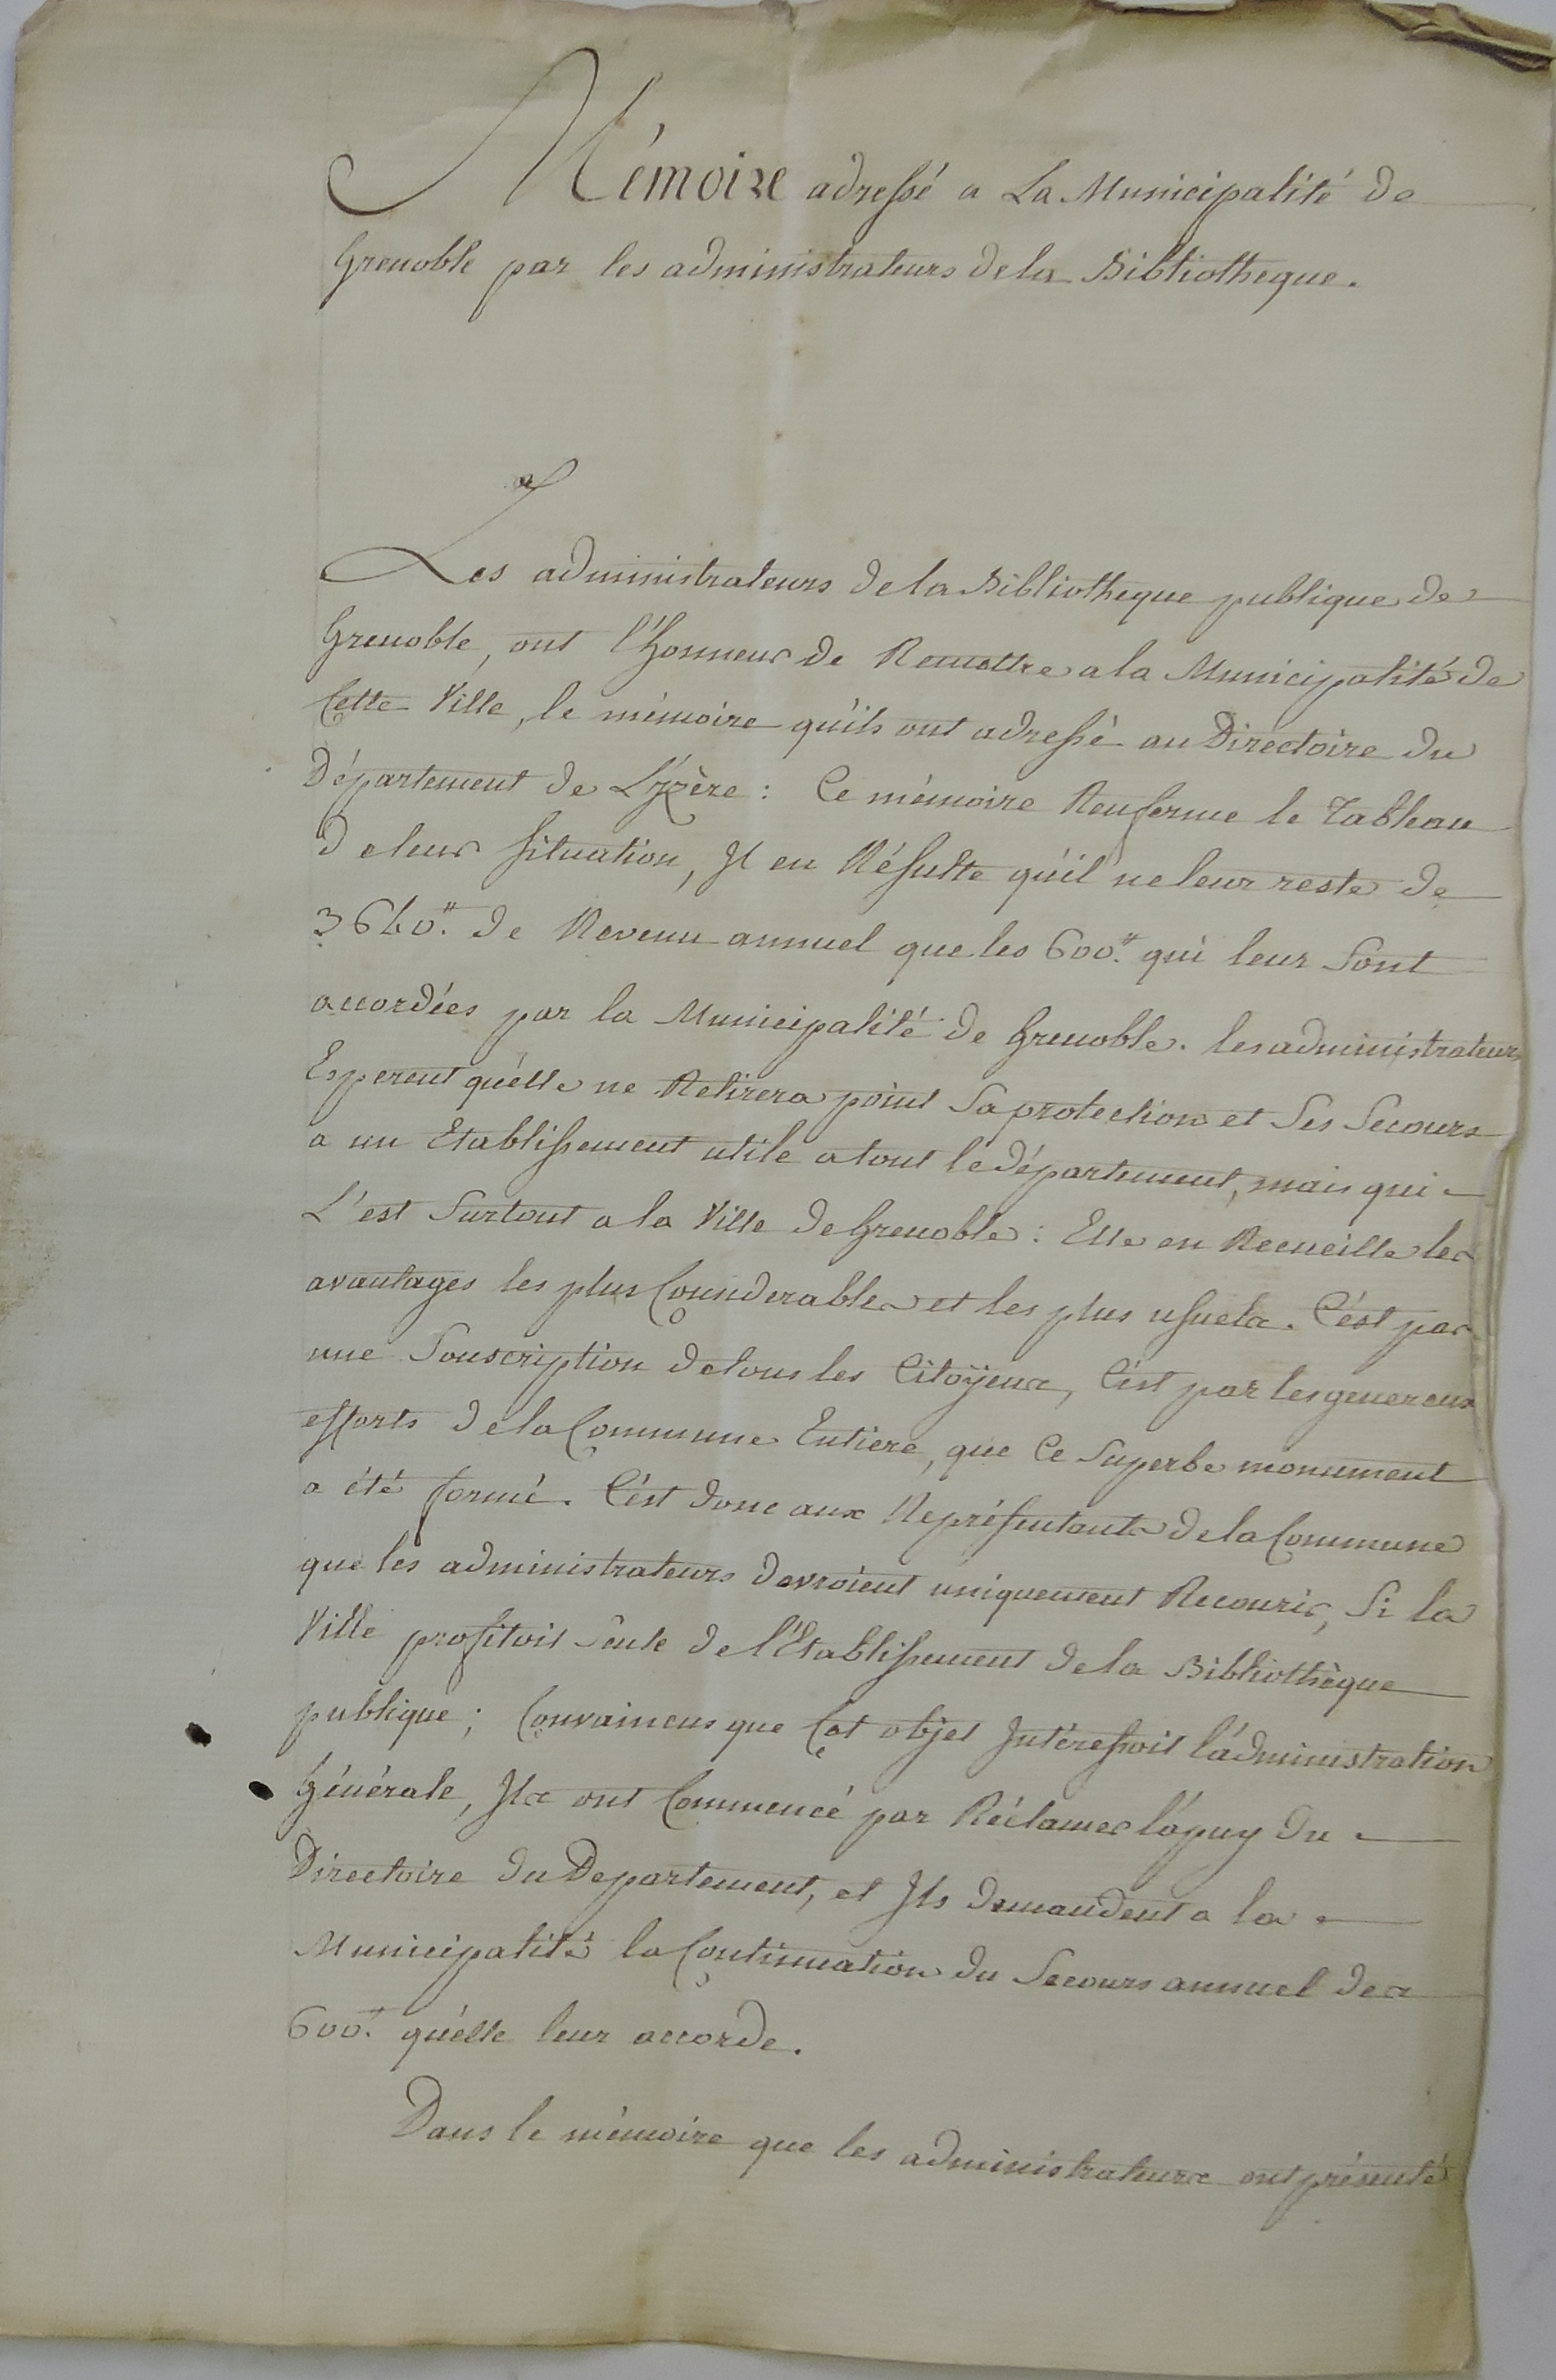 Mémoire adressé a La Municipalité de
Grenoble par les administrateurs dela Bibliotheque.
Les administrateurs dela Bibliotheque publique de
Grenoble, ont l'honneur de Remettre a la Municipalité de
Cette Ville, le mémoire qu'ils ont adressé au Directoire du
Département de L'Yzère : Ce mémoire Renferme le Tableau
de leur situation, Il en Résulte qu'il ne leur reste de
3640.# de Revenu annuel que les 600.# qui leur Sont
accordées par la Municipalité de Grenoble. les administrateurs
Esperent qu'elle ne Retirera point Sa protection et Ses Secours
a un Etablissement utile a tout le département, mais qui
L'est Surtout a la Ville de Grenoble : Elle en Recueille les
avantages les plus Considerables et les plus usuels. C'est par
une Souscription de tous les Citoÿens, C'est par les genereux
efforts de la Commune Entiere, que Ce Superbe monument
a été formé. C'est donc aux Représentants de la Commune
que les administrateurs devroient uniquement Recourir, Si la
Ville profitoit Seule de l'Etablissement de la Bibliothèque
publique ; Convaincus que Cet objet Intéressoit l'administration
Générale, Ils ont Commencé par Réclamer l'apuy du
Directoire du Departement, et Ils demandent a la
Municipalité la Continuation du Secours annuel de
600.# qu'elle leur accorde.
Dans le mémoire que les administrateurs ont présenté